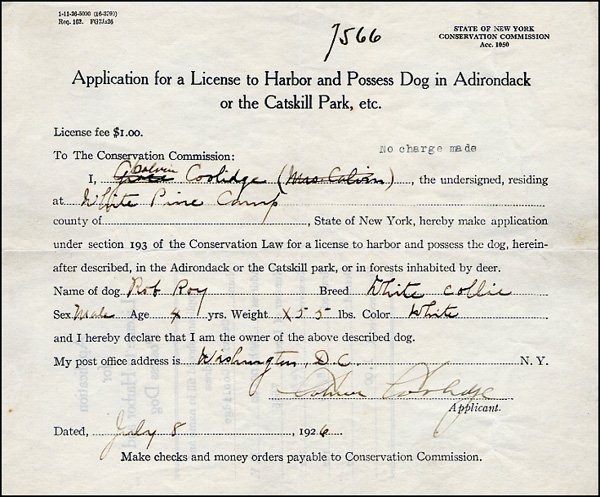 1-11-26-5000 (16-3793)
Req. 162. FG2526
7566
STATE OF NEW YORK
CONSERVATION COMMISSION
Acc. 1050
Application for a License to Harbor and Possess Dog in Adirondack
or the Catskill Park, etc.
License fee $1.00.
No charge made
To The Conservation Commission:
Calvin
I, Grace Coolidge (Mrs Calvin), the undersigned, residing
at White Pine Camp
county of, State of New York, hereby make application
under section 193 of the Conservation Law for a license to harbor and possess the dog, herein-
after described, in the Adirondack or the Catskill park, or in forests inhabited by deer.
Name of dog Rob Roy Breed White Collie
Sex Male Age 4 yrs. Weight X55 lbs. Color White
and I hereby declare that I am the owner of the above described dog.
My post office address is Washington, D.C. N. Y.
Calvin Coolidge
Applicant.
Dated, July 8, 1926
Make checks and money orders payable to Conservation Commission.